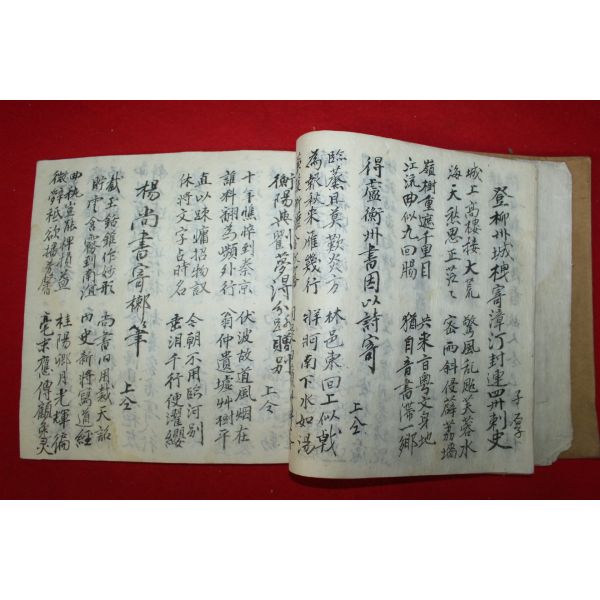 登柳州城樓寄漳汀封連四州刺史 子厚
城上高樓接大荒 驚風亂颭芙蓉水
海天愁思正茫々 密雨斜侵薜荔墻
嶺樹重遮千里目 共来百粤文身地
江流曲似九回腸 猶自音書滯一鄉
得盧衡州書因以詩寄 上仝
臨蒸且莫歎炎方 林邑東回山似戟
為報秋来雁幾行 牂牁南下水如湯
衡陽與夢得分路贈別 上仝
十年憔悴到秦京 伏波故道風烟在
誰料翻為嶺外行 翁仲遺墟艸樹平
直以踈慵招物議 今朝不用臨河別
休將文字占時名 垂泪千行便濯纓
楊尚書寄郴筆 上仝
截玉銛錐作妙形 尚書旧用裁天詔
貯雲含霧到南溟 內史新將寫道經
曲技豈能俾損益 桂陽卿月光輝徧
微辭祗欲播芳馨 毫末應傳顧兎灵